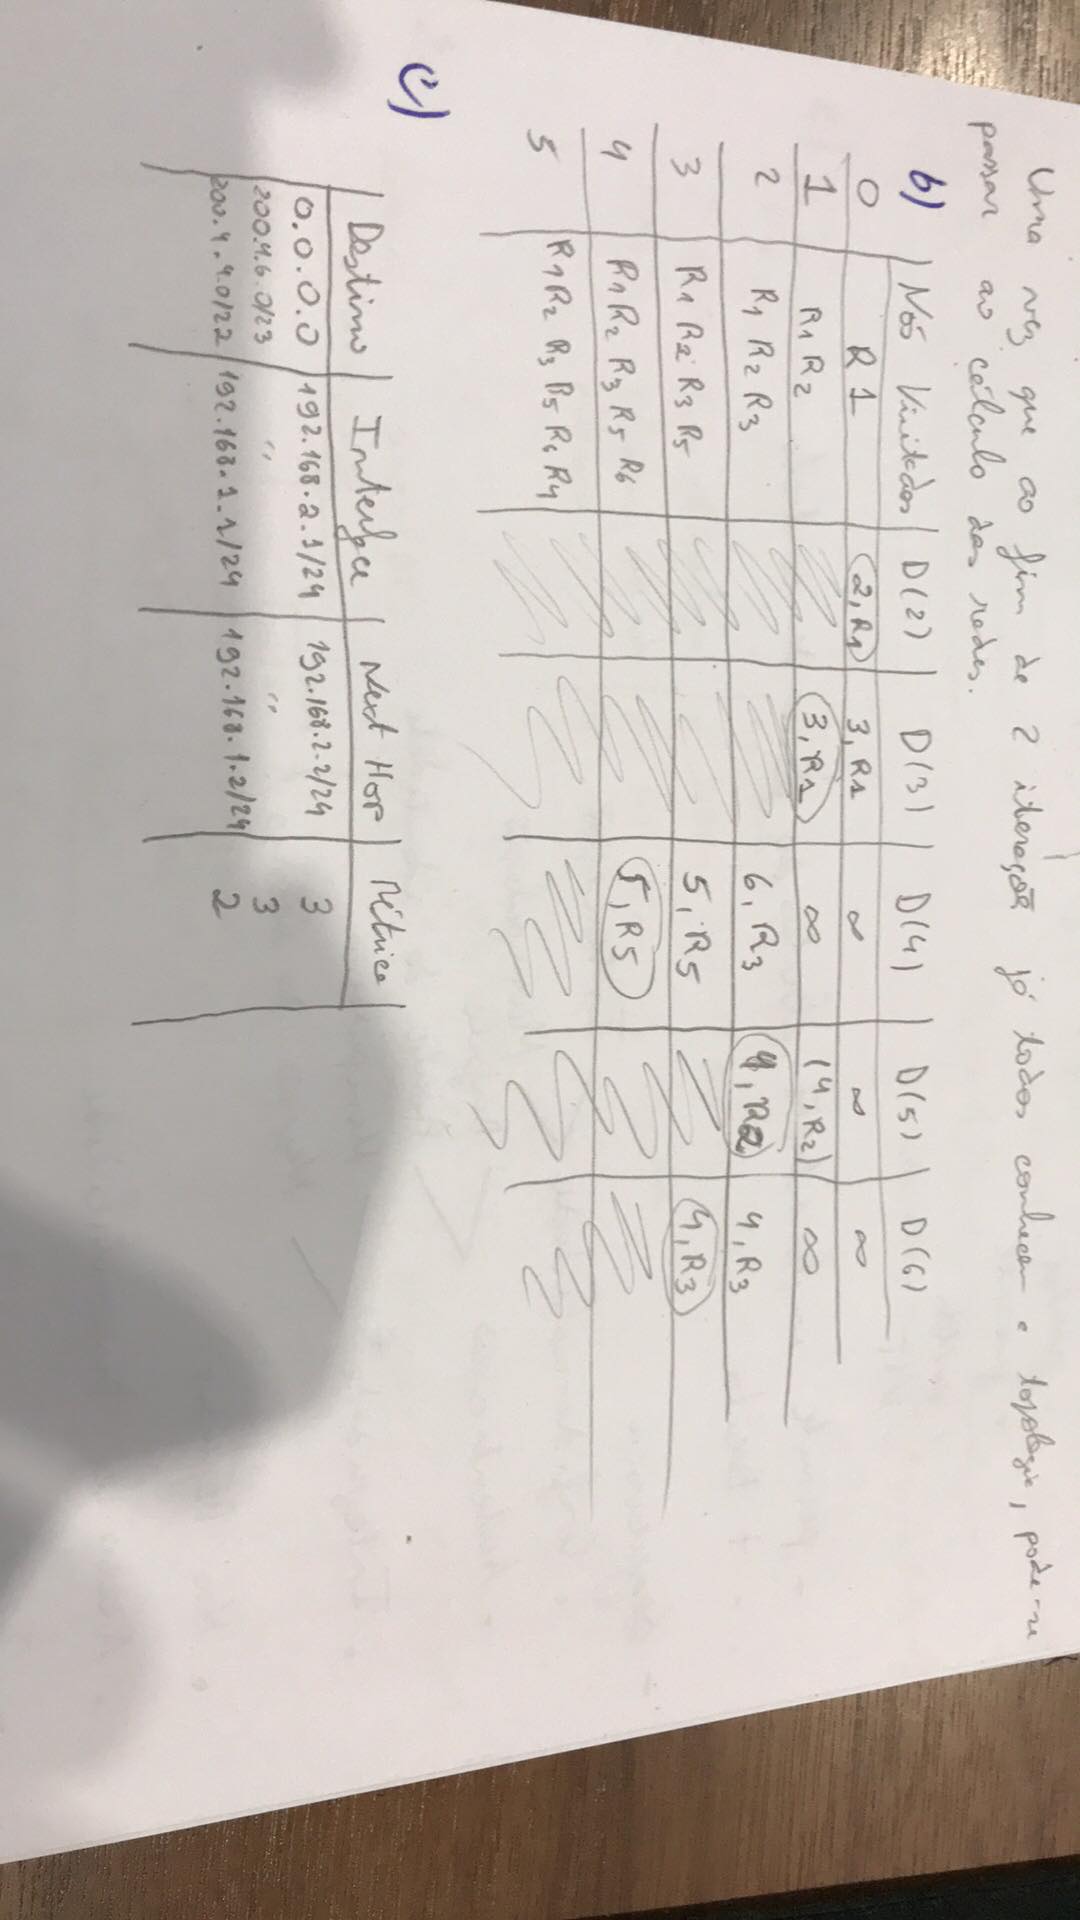 Uma vez que ao fim de 2 iteração já todos conhecem a topologia, pode-se
passar ao cálculo das redes.
b) Nós Visitados D(2) D(3) D(4) D(5) D(6)
0 R1 2,R1 3,R1 ∞ ∞ ∞
1 R1 R2 3,R1 ∞ (4,R2) ∞
2 R1 R2 R3 6,R3 4,R2 4,R3
3 R1 R2 R3 R5 5,R5 4,R3
4 R1 R2 R3 R5 R6 5,R5
5 R1 R2 R3 R5 R6 R4
c)
Destino Interface Next Hop Métrica
0.0.0.0 192.168.2.1/24 192.168.2.2/24 3
200.4.6.0/23 " " 3
200.4.4.0/22 192.168.1.1/24 192.168.1.2/24 2